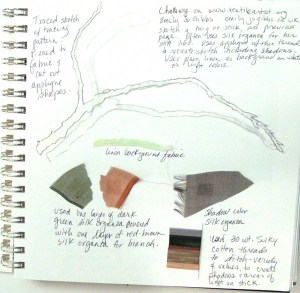 Traced sketch
of tracing
pattern
used to
fabric &
cut out
appliqué
shapes.
Challenge on www.textileartist.org
Emily Jo Gibbs
sketch a twig or stick, see previous
page. Often uses silk organza for her
still life. Uses appliqué of then threads
to recreate sketch including shadows.
Uses plain linen as background in white
or light colors.
linen background fabric
used one layer of dark
green silk organza covered
with one layer of red-brown
silk organza for branch.
Shadow color
silk organza
used 30 wt. Sulky
cotton threads
to stitch - variety
of values to create
shadows & areas of
light on stick.